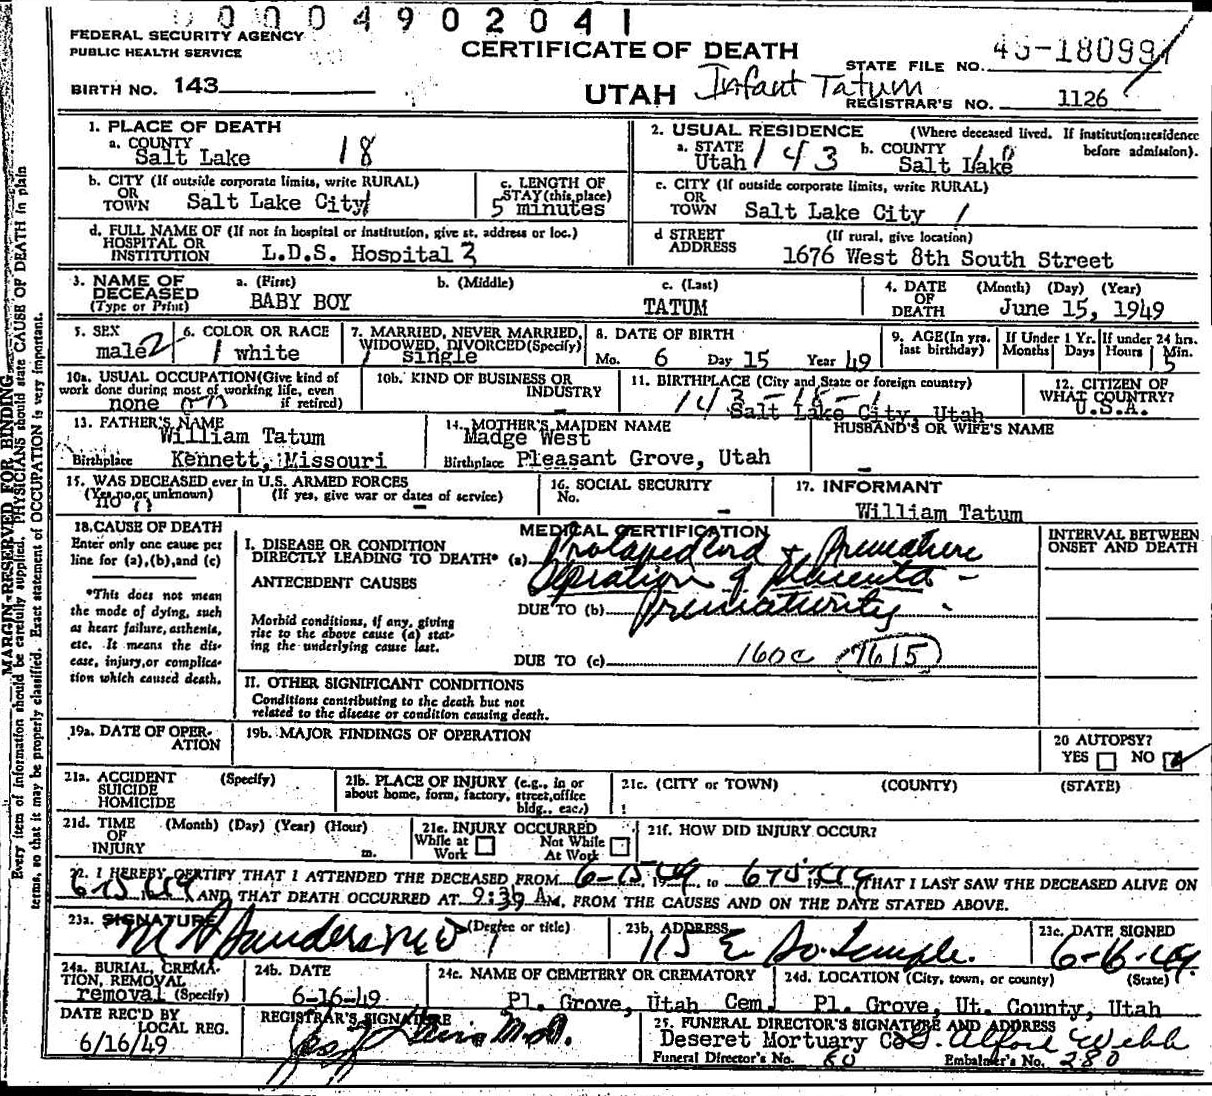 0 0 0 4 9 0 2 0 4 1
FEDERAL SECURITY AGENCY
PUBLIC HEALTH SERVICE
CERTIFICATE OF DEATH
STATE FILE NO. 49-180991
BIRTH NO. 143
UTAH Infant Tatum
REGISTRAR'S NO. 1126
1. PLACE OF DEATH
a. COUNTY
Salt Lake 18
2. USUAL RESIDENCE (Where deceased lived. If institution: residence before admission).
a. STATE
Utah 143
b. COUNTY
Salt Lake 18
b. CITY (If outside corporate limits, write RURAL)
OR
TOWN Salt Lake City
c. LENGTH OF
STAY (this place)
5 minutes
c. CITY (If outside corporate limits, write RURAL)
OR
TOWN Salt Lake City 1
d. FULL NAME OF (If not in hospital or institution, give st. address or loc.)
HOSPITAL OR
INSTITUTION L.D.S. Hospital 3
d STREET (If rural, give location)
ADDRESS 1676 West 8th South Street
3. NAME OF
DECEASED
(Type or Print)
a. (First)
BABY BOY
b. (Middle)
c. (Last)
TATUM
4. DATE (Month) (Day) (Year)
OF
DEATH June 15, 1949
5. SEX
male 2
6. COLOR OR RACE
1 white
7. MARRIED, NEVER MARRIED,
WIDOWED, DIVORCED (Specify)
1 single
8. DATE OF BIRTH
Mo. 6 Day 15 Year 49
9. AGE (In yrs.
last birthday)
If Under 1 Yr.
Months Days
If under 24 hrs.
Hours Min.
5
10a. USUAL OCCUPATION (Give kind of
work done during most of working life, even
if retired)
none
10b. KIND OF BUSINESS OR
INDUSTRY
-
11. BIRTHPLACE (City and State or foreign country)
143-18-1
Salt Lake City, Utah
12. CITIZEN OF
WHAT COUNTRY?
U.S.A.
13. FATHER'S NAME
William Tatum
Birthplace Kennett, Missouri
14. MOTHER'S MAIDEN NAME
Madge West
Birthplace Pleasant Grove, Utah
HUSBAND'S OR WIFE'S NAME
-
15. WAS DECEASED ever in U.S. ARMED FORCES
(Yes, no, or unknown) (If yes, give war or dates of service)
no 0 -
16. SOCIAL SECURITY
No. -
17. INFORMANT
William Tatum
18. CAUSE OF DEATH
Enter only one cause per
line for (a), (b), and (c)
*This does not mean
the mode of dying, such
as heart failure, asthenia,
etc. It means the dis-
ease, injury, or complica-
tion which caused death.
MEDICAL CERTIFICATION
I. DISEASE OR CONDITION
DIRECTLY LEADING TO DEATH* (a) Prolapsed Cord + Premature
Separation of Placenta -
ANTECEDENT CAUSES
DUE TO (b) Prematurity -
Morbid conditions, if any, giving
rise to the above cause (a) stat-
ing the underlying cause last.
DUE TO (c) 160c 7615
II. OTHER SIGNIFICANT CONDITIONS
Conditions contributing to the death but not
related to the disease or condition causing death.
INTERVAL BETWEEN
ONSET AND DEATH
19a. DATE OF OPER-
ATION
19b. MAJOR FINDINGS OF OPERATION
20 AUTOPSY?
YES NO
21a. ACCIDENT (Specify)
SUICIDE
HOMICIDE
21b. PLACE OF INJURY (e.g., in or
about home, form, factory, street, office
bldg., eac.)
21c. (CITY or TOWN) (COUNTY) (STATE)
21d. TIME (Month) (Day) (Year) (Hour)
OF
INJURY m.
21e. INJURY OCCURRED
While at Work
Not While At Work
21f. HOW DID INJURY OCCUR?
22. I HEREBY CERTIFY THAT I ATTENDED THE DECEASED FROM 6-15, 1949 to 6-15, 1949, THAT I LAST SAW THE DECEASED ALIVE ON
6-15 1949 AND THAT DEATH OCCURRED AT 9:36 A M, FROM THE CAUSES AND ON THE DATE STATED ABOVE.
23a. SIGNATURE (Degree or title)
M A Sanders MD
23b. ADDRESS
115 E So. Temple.
23c. DATE SIGNED
6-16-49.
24a. BURIAL, CREMA-
TION, REMOVAL
removal (Specify)
24b. DATE
6-16-49
24c. NAME OF CEMETERY OR CREMATORY
Pl. Grove, Utah Cem.
24d. LOCATION (City, town, or county) (State)
Pl. Grove, Ut. County, Utah
DATE REC'D BY
LOCAL REG.
6/16/49
REGISTRAR'S SIGNATURE
M.D.
25. FUNERAL DIRECTOR'S SIGNATURE AND ADDRESS
Deseret Mortuary Co Webb
Funeral Director's No. 60 Embalmer's No. 280
MARGIN RESERVED FOR BINDING
Every item of information should be carefully supplied. PHYSICIANS should state CAUSE OF DEATH in plain
terms, so that it may be properly classified. Exact statement of OCCUPATION is very important.